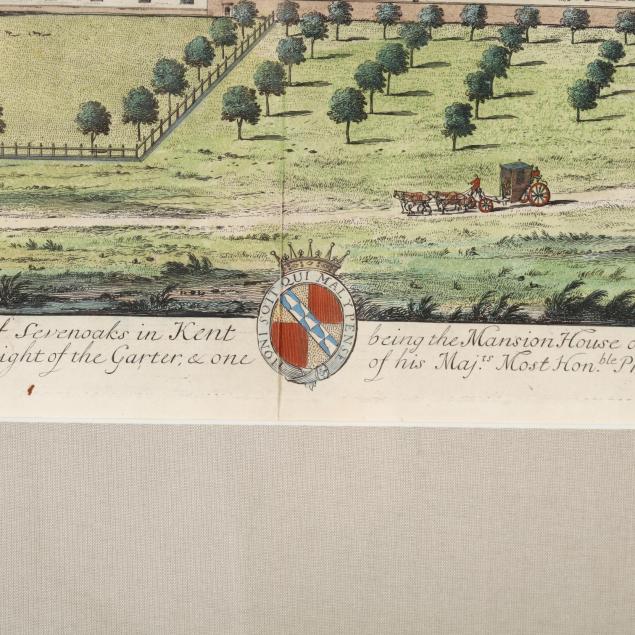 HONI SOIT QUI MAL Y PENSE
f Sevenoaks in Kent being the Mansion House o
ight of the Garter, & one of his Maj.ts Most Hon.ble P